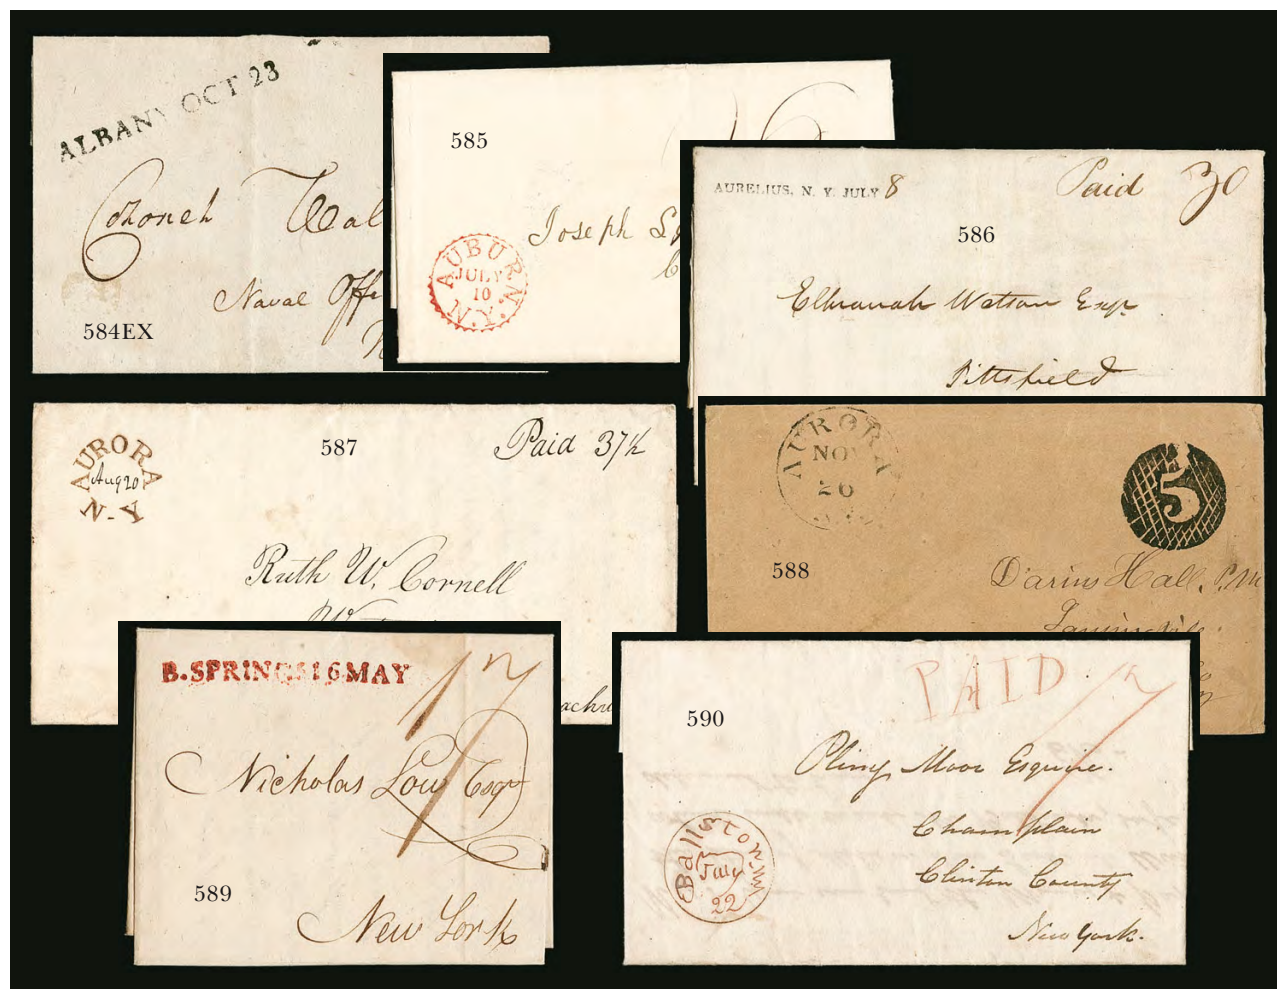 ALBANY OCT 23
Colonel Wal
Naval Offi
584EX
585
16
Joseph
AUBURN N.Y.
JULY
10
AURELIUS, N. Y. JULY 8
Paid 30
586
Elkanah Watson Esqr
Pittsfield
AURORA N-Y
Aug 20
587
Paid 37½
Ruth W. Cornell
AURORA
NOV
26
5
588
Darius Hall. P.M
B.SPRINGS 16 MAY
17
Nicholas Low Esqr
589
New York
PAID 17
590
Pliny Moor Esquire.
Champlain
Clinton County
New York.
Ballston
July
22